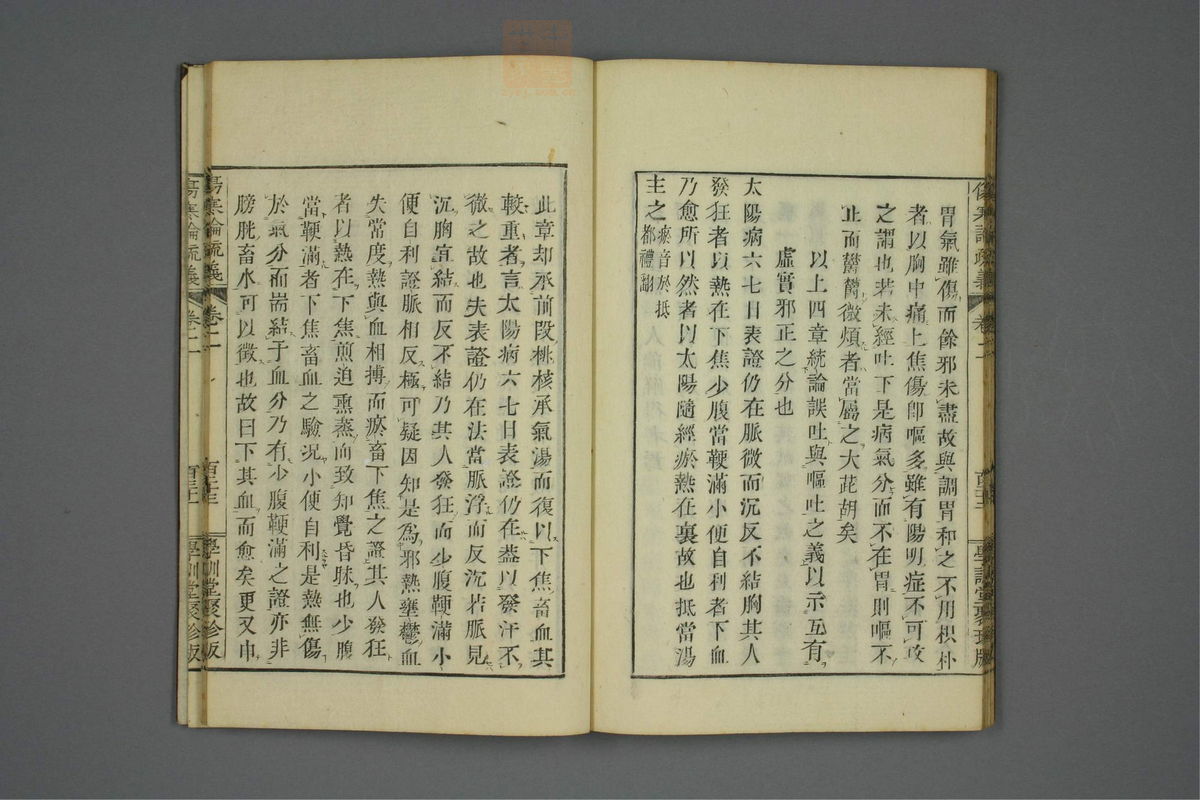 胃氣雖傷而餘邪未盡故與調胃和之不用枳朴
者以胸中痛上焦傷卽嘔多雖有陽明症不可攻
之謂也若未經吐下是病氣分而不在胃則嘔不
止而鬱鬱微煩者當屬之大茈胡矣
以上四章統論誤吐與嘔吐之義以示互有
虛實邪正之分也
太陽病六七日表證仍在脈微而沉反不結胸其人
發狂者以熱在下焦少腹當鞕滿小便自利者下血
乃愈所以然者以太陽隨經瘀熱在裏故也抵當湯
主之瘀音於抵都禮翻
此章却承前段桃核承氣湯而復以下焦畜血其
較重者言太陽病六七日表證仍在葢以發汗不
徹之故也夫表證仍在法當脈浮而反沉若脈見
沉胸宜結而反不結乃其人發狂而少腹鞕滿小
便自利證脈相反極可疑因知是爲邪熱壅鬱血
失常度熱與血相搏而瘀畜下焦之證其人發狂
者以熱在下焦煎迫熏蒸而致知覺昏昧也少腹
當鞕滿者下焦畜血之驗況小便自利是熱無傷
於氣分而耑結于血分乃有少腹鞕滿之證亦非
膀胱畜水可以徵也故曰下其血而愈矣更又申
傷寒論疏義
卷二
百三十三
學訓堂聚珍版